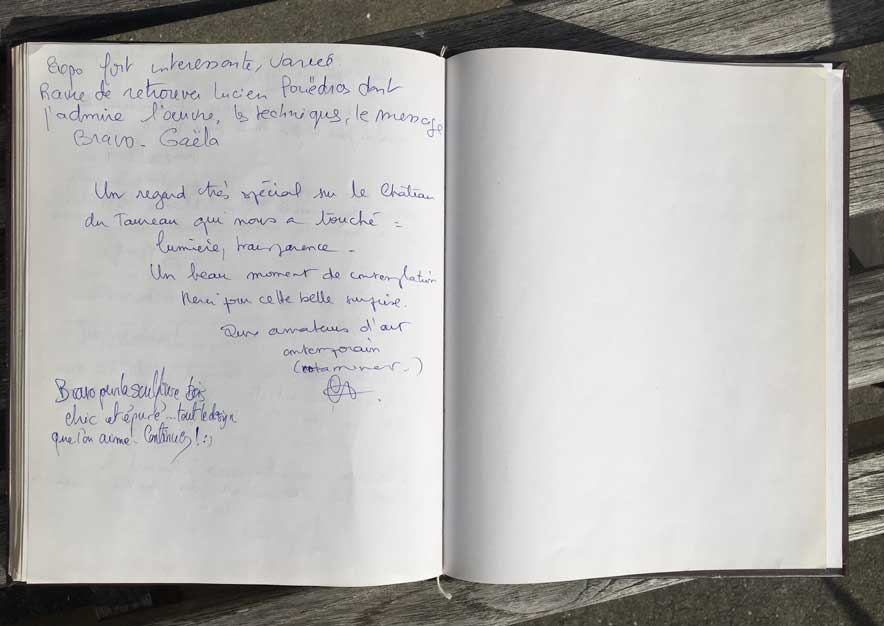 Expo fort interessante, variée
Ravie de retrouver Lucien Pouëdras dont
j'admire l'œuvre, les techniques, le message
Bravo - Gaëla
Un regard très spécial sur le Château
du Taureau qui nous a touché =
lumière, transparence -
Un beau moment de contemplation
Merci pour cette belle surprise.
amateurs d'art
contemporain
Bravo pour la sculpture bois
chic et épuré ... tout le design
que l'on aime! Continuez! :)